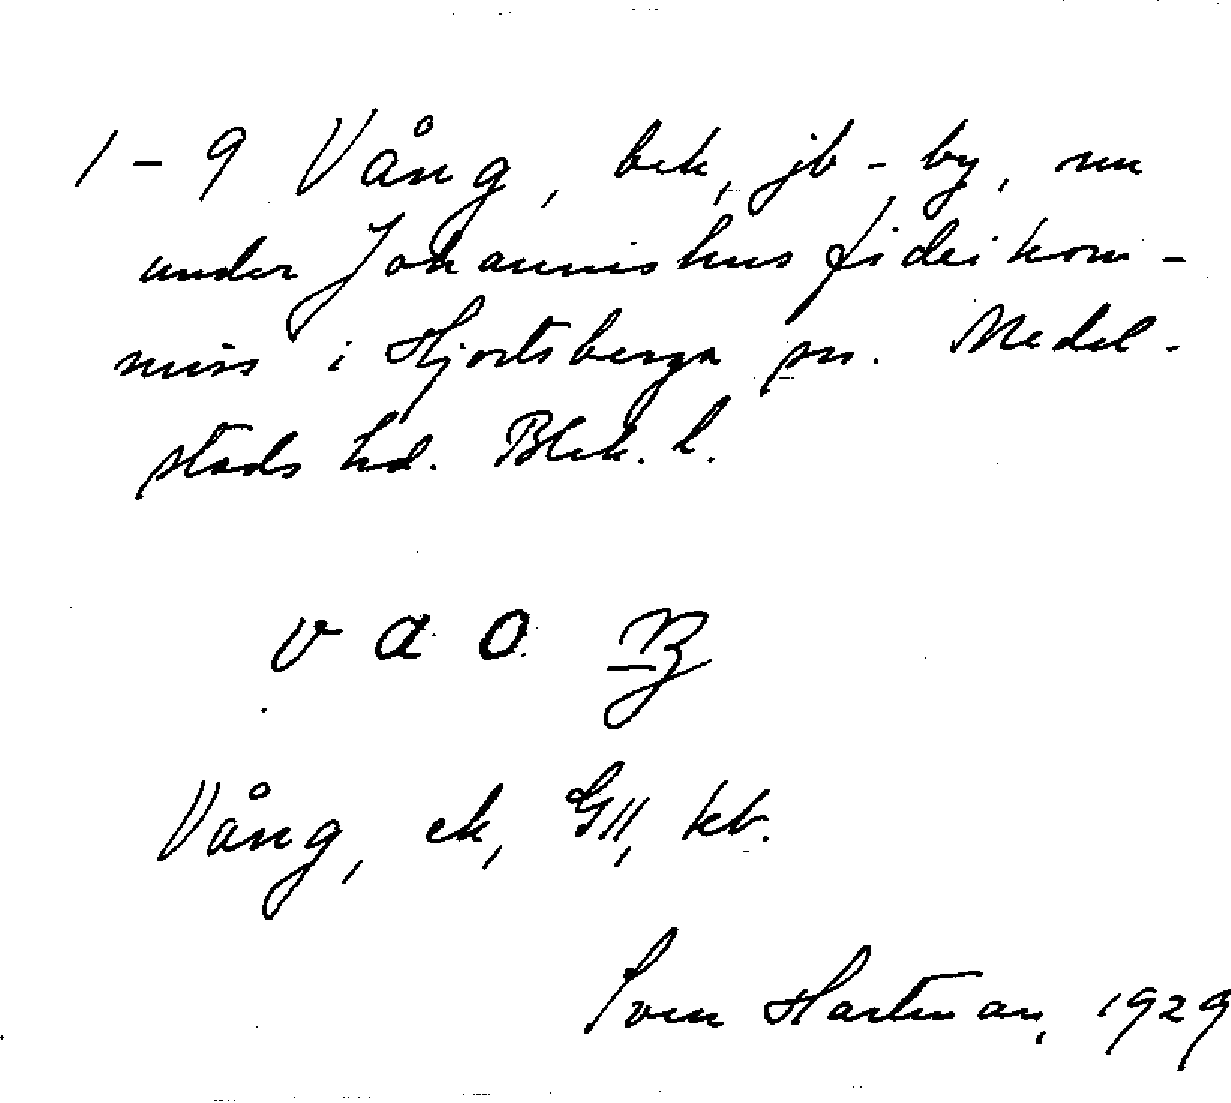 1-9 Vång, bek, jb-by, nu
under Johannishus fideikom-
miss i Hjortsberga sn. Medel-
stads hd. Blek. l.
v a o
Vång, ek, GII, kb.
Sven Hartman, 1929